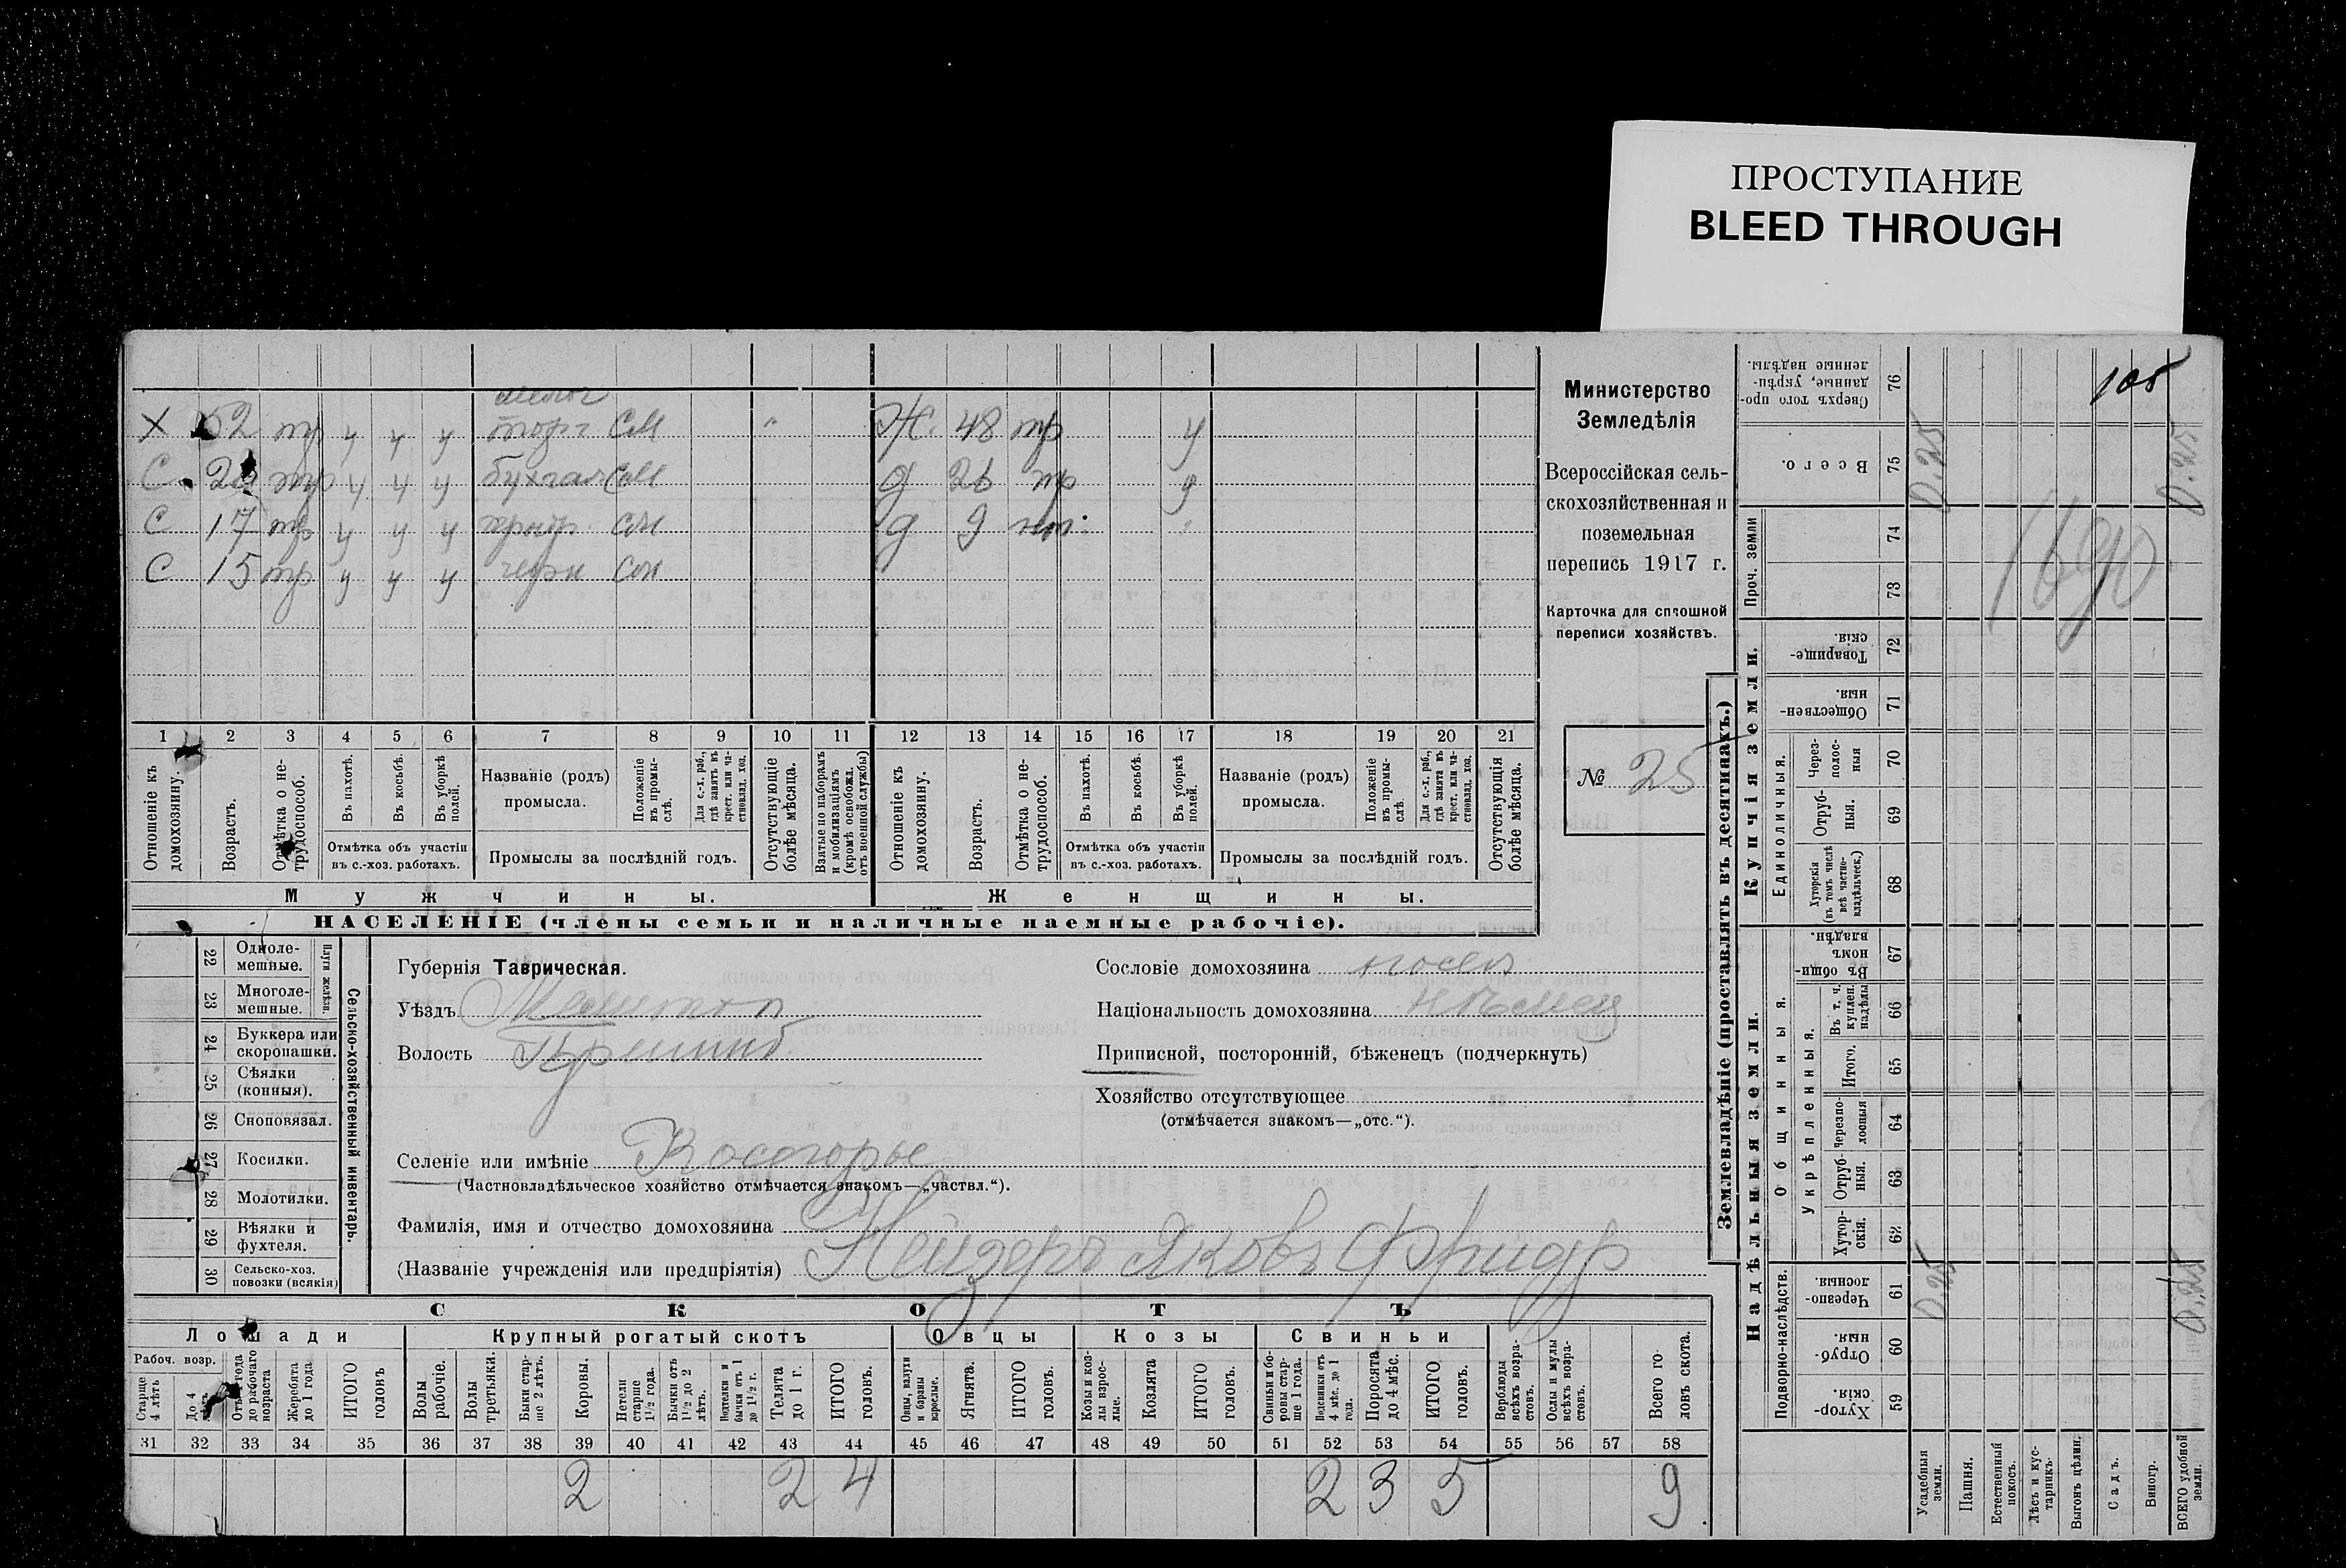 ПРОСТУПАНИЕ
BLEED THROUGH
Министерство
Земледѣлія
Всероссійская сель-
скохозяйственная и
поземельная
перепись 1917 г.
Карточка для сплошной
переписи хозяйствъ.
№ 25
Х 52 тр у у у торг сам " Ж. 48 тр у
С тр у у у бухгал д 26 тр у
С 17 тр у у у д 9 нт.
С 15 тр у у у
1 2 3 4 5 6 7 8 9 10 11 12 13 14 15 16 17 18 19 20 21
Отношеніе къ домохозяину.
Возрастъ.
Отмѣтка о не-трудоспособ.
Въ пахотѣ.
Въ косьбѣ.
Въ уборкѣ полей.
Отмѣтка объ участіи въ с.-хоз. работахъ.
Названіе (родъ) промысла.
Положеніе въ промы-слѣ.
Для с.-х. раб., гдѣ занятъ въ крест. или ча-стновлад. хоз.
Промыслы за послѣдній годъ.
Отсутствующіе болѣе мѣсяца.
Взятые по наборамъ и мобилизаціямъ (кромѣ освобожд. отъ военной службы)
Отношеніе къ домохозяину.
Возрастъ.
Отмѣтка о не-трудоспособ.
Въ пахотѣ.
Въ косьбѣ.
Въ уборкѣ полей.
Отмѣтка объ участіи въ с.-хоз. работахъ.
Названіе (родъ) промысла.
Положеніе въ промы-слѣ.
Для с.-х. раб., гдѣ занята въ крест. или ча-стновлад. хоз.
Промыслы за послѣдній годъ.
Отсутствующія болѣе мѣсяца.
Мужчины.
Женщины.
НАСЕЛЕНІЕ (члены семьи и наличные наемные рабочіе).
22 Одноле-мешные.
23 Многоле-мешные.
Плуги желѣзн.
24 Буккера или скоропашки.
25 Сѣялки (конныя).
26 Сноповязал.
27 Косилки.
28 Молотилки.
29 Вѣялки и фухтеля.
30 Сельско-хоз. повозки (всякія)
Сельско-хозяйственный инвентарь.
Губернія Таврическая.
Уѣздъ
Волость
Селеніе или имѣніе Косогорье
(Частновладѣльческое хозяйство отмѣчается знакомъ—„частвл.“).
Фамилія, имя и отчество домохозяина
(Названіе учрежденія или предпріятія) Нейзеръ Яковъ Фридр
Сословіе домохозяина посел
Національность домохозяина нѣмец
Приписной, посторонній, бѣженецъ (подчеркнуть)
Хозяйство отсутствующее
(отмѣчается знакомъ—„отс.“).
СКОТЪ
Лошади
Крупный рогатый скотъ
Овцы
Козы
Свиньи
Рабоч. возр.
Старше 4 лѣтъ
До 4 лѣтъ.
Отъ 1 года до рабочаго возраста
Жеребята до 1 года.
ИТОГО головъ
Волы рабочіе.
Волы третьяки.
Быки стар-ше 2 лѣтъ.
Коровы.
Нетели старше 1½ года.
Бычки отъ 1½ до 2 лѣтъ.
Подтелки и бычки отъ 1 до 1½ г.
Телята до 1 г.
ИТОГО головъ.
Овцы, валухи и бараны взрослые.
Ягнята.
ИТОГО головъ.
Козы и коз-лы взрос-лые.
Козлята
ИТОГО головъ.
Свиньи и бо-ровы стар-ше 1 года.
Подсвинки отъ 4 мѣс. до 1 года.
Поросята до 4 мѣс.
ИТОГО головъ.
Верблюды всѣхъ возра-стовъ.
Ослы и мулы всѣхъ возра-стовъ.
Всего го-ловъ скота.
31 32 33 34 35 36 37 38 39 40 41 42 43 44 45 46 47 48 49 50 51 52 53 54 55 56 57 58
2 2 4 2 3 5 9
Землевладѣніе (проставлять въ десятинахъ.)
Надѣльныя земли.
Купчія земли.
Проч. земли
Подворно-наслѣдств.
Общинныя.
Укрѣпленныя.
Единоличныя.
Сверхъ того про-данные, укрѣп-ленные надѣлы. 76
Всего. 75
74
73
Товарище-скія. 72
Обществен-ныя. 71
Через-полос-ныя 70
Отруб-ныя. 69
Хуторскія (въ томъ числѣ всѣ частно-владѣльческ.) 68
Въ общин-номъ владѣн. 67
Въ т. ч. куплен. надѣлы 66
Итого. 65
Черезпо-лосныя 64
Отруб-ныя. 63
Хутор-скія. 62
Черезпо-лосныя. 61
Отруб-ныя. 60
Хутор-скія. 59
Усадебныя земли.
Пашня.
Естественный покосъ.
Лѣсъ и кус-тарникъ.
Выгонъ цѣлин.
Садъ.
Виногр.
ВСЕГО удобной земли.
105
0,25
0,25
1690
0,25
0,25